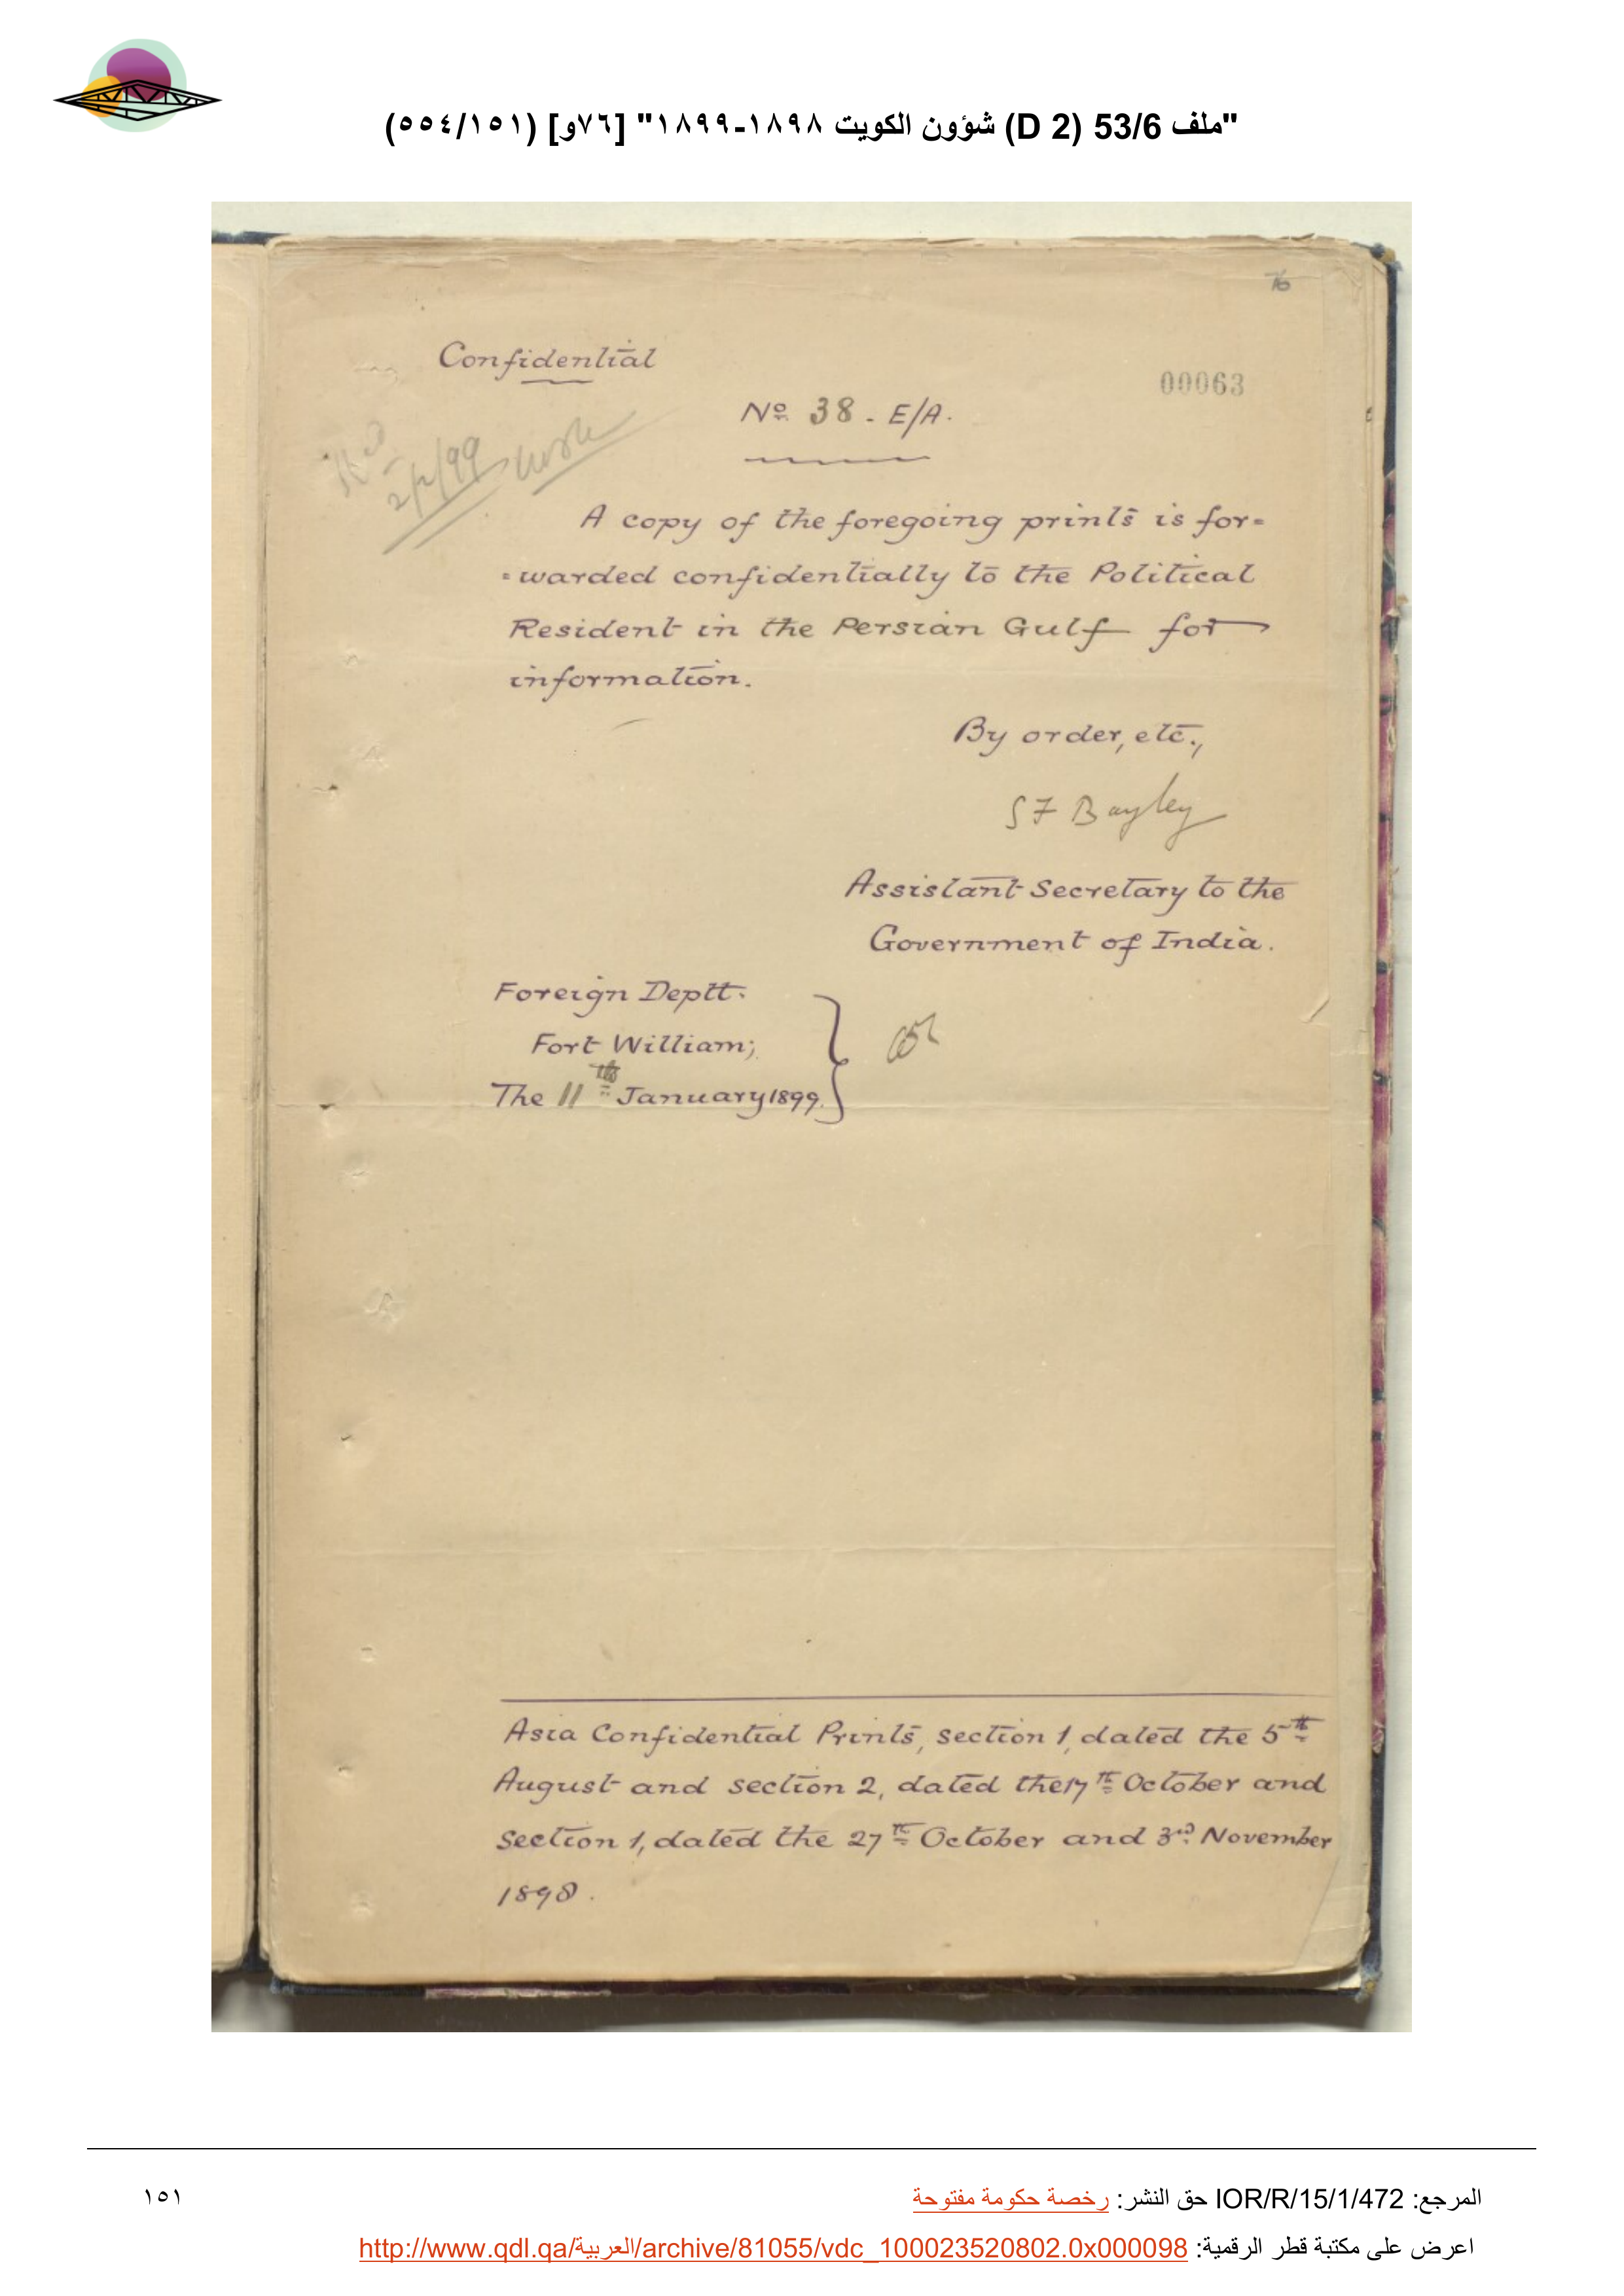 "ملف 53/6 (D 2) شؤون الكويت ١٨٩٨-١٨٩٩" [٧٦و] (٥٥٤/١٥١)
76
Confidential
00063
No. 38 - E/A.
2/2/99
A copy of the foregoing prints is for=
=warded confidentially to the Political
Resident in the Persian Gulf for
information.
By order, etc.,
S F Bayley
Assistant Secretary to the
Government of India.
Foreign Deptt.
Fort William;
The 11th January 1899.
Asia Confidential Prints, section 1, dated the 5th
August and section 2, dated the 17th October and
section 1, dated the 27th October and 3rd November
1898.
المرجع: IOR/R/15/1/472 حق النشر: رخصة حكومة مفتوحة
١٥١
اعرض على مكتبة قطر الرقمية: http://www.qdl.qa/العربية/archive/81055/vdc_100023520802.0x000098